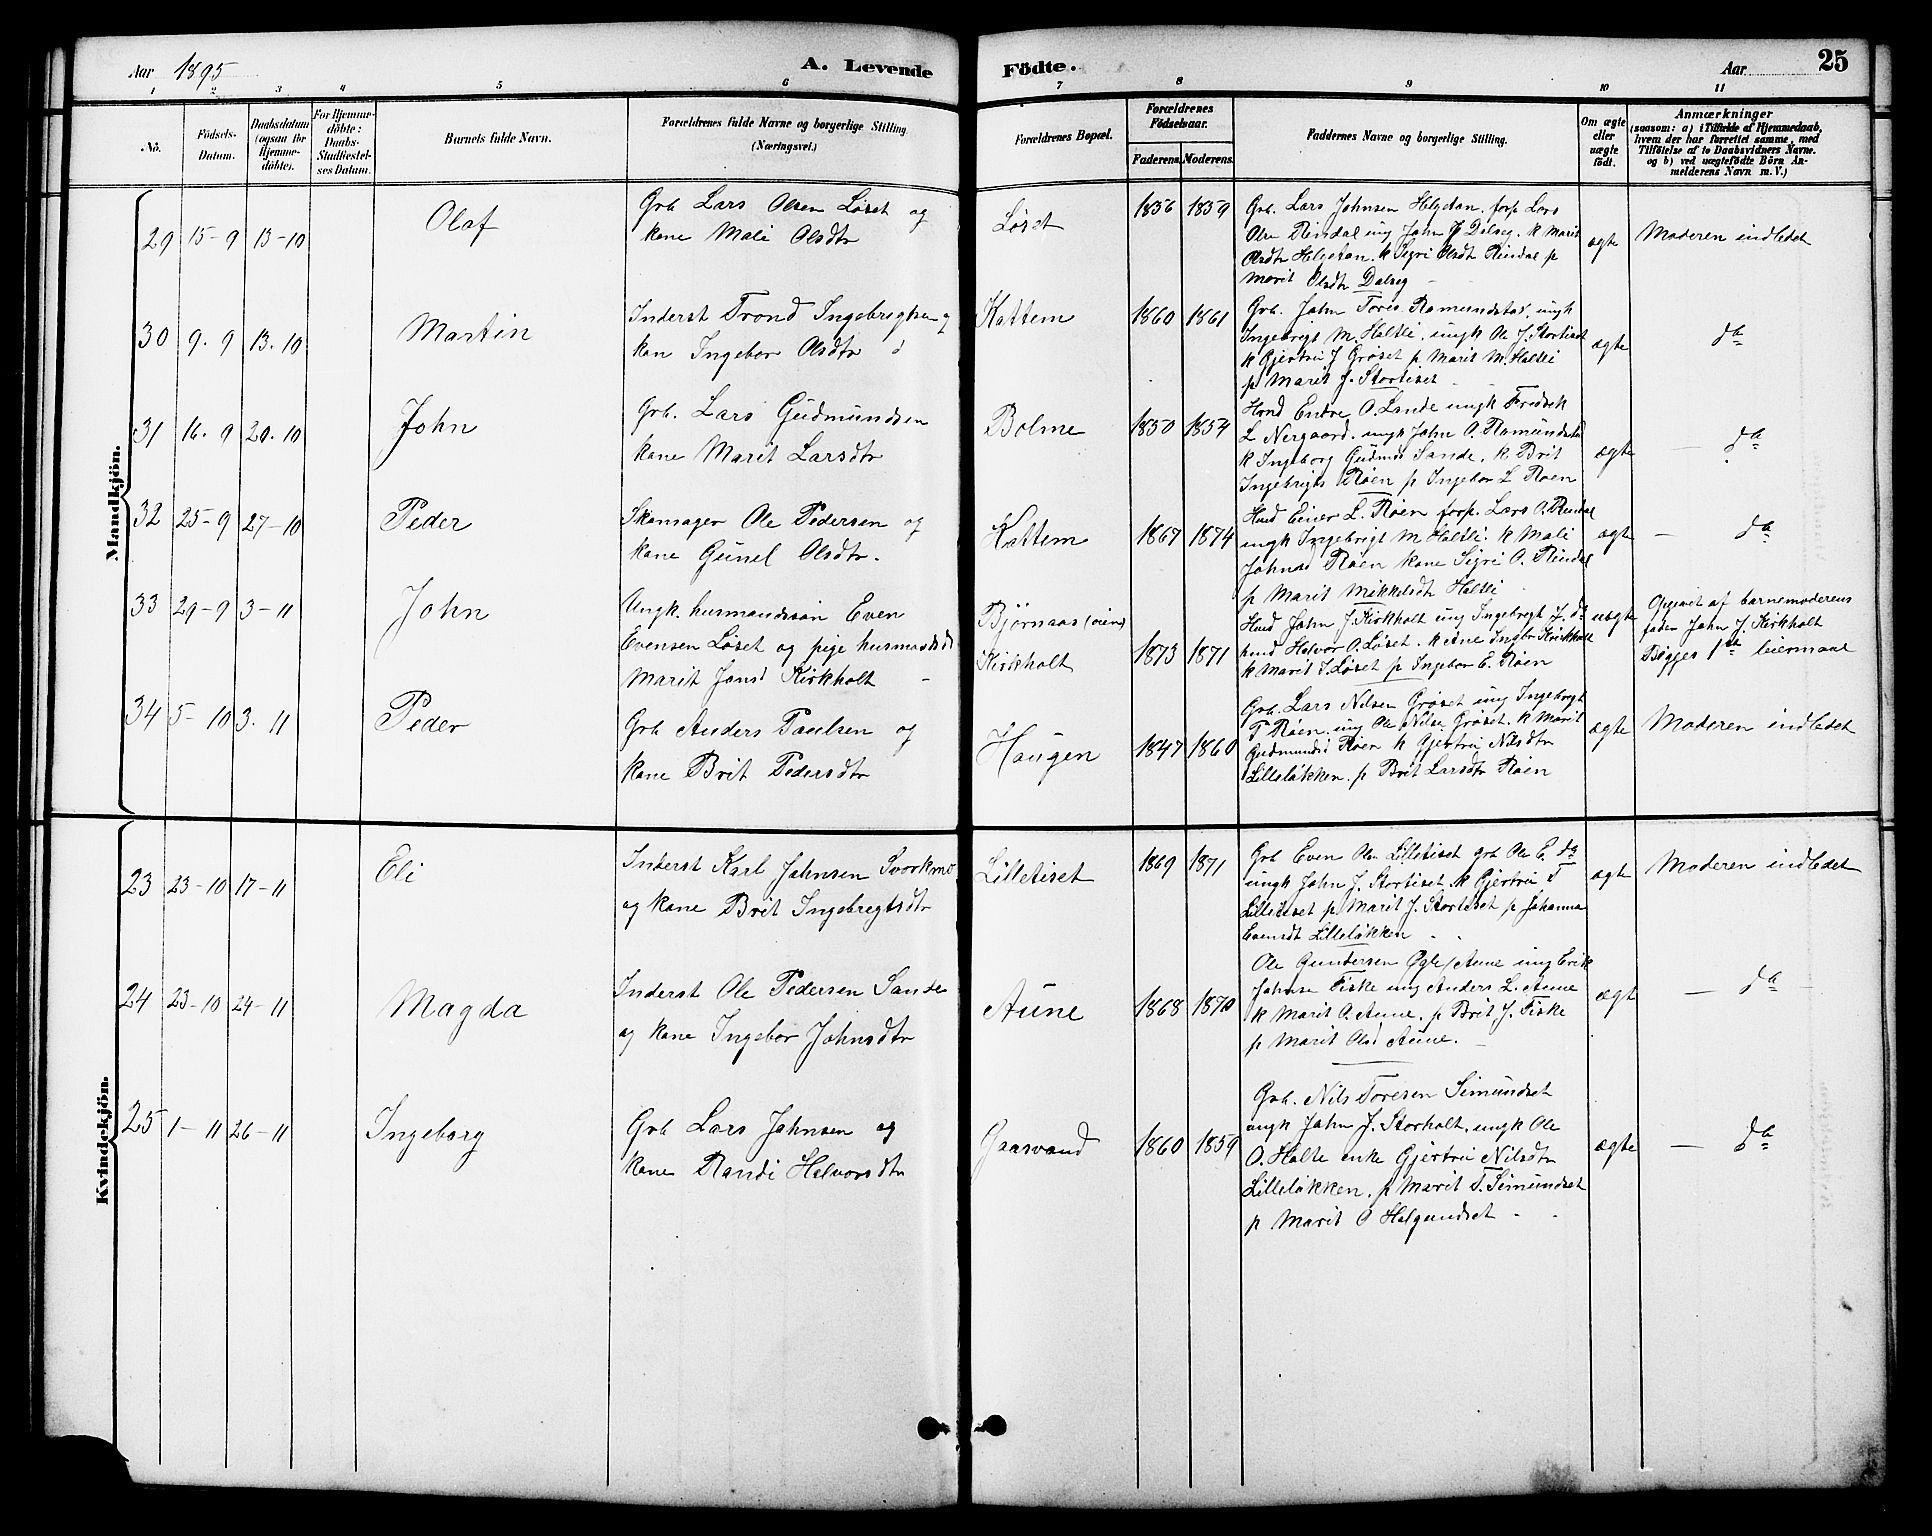 Aar 1895
A. Levende Födte.
Aar 25
1 2 3 4 5 6 7 8 9 10 11
No.
Födsels-
Datum.
Daabsdatum
(ogsaa for
Hjemme-
döbte).
For Hjemme-
döbte:
Daabs-
Stadfæstel-
ses Datum.
Barnets fulde Navn.
Forældrenes fulde Navne og borgerlige Stilling.
(Næringsvei.)
Forældrenes Bopæl.
Forældrenes
Födselsaar.
Faderens. Moderens.
Faddernes Navne og borgerlige Stilling.
Om ægte
eller
uægte
födt.
Anmærkninger
(saasom: a) i Tilfælde af Hjemmedaab,
hvem der har forrettet samme, med
Tilföielse af to Daabsvidners Navne.
og b) ved uægtefödte Börn An-
melderens Navn m. V.)
Mandkjön.
29 15-9 13-10 Olaf
Grb Lars Olsen Løset og
kone Mali Olsdtr
Løset 1856 1859
Grb. Lars Johnsen Helgetan. forp Lars
Olsn Rindal ung John J Dalseg. k Marit
Olsdtr Helgetan. k Sigri Olsdt Rindal p
Marit Olsdtr Dalseg
ægte Moderen indledet
30 9.9 13.10 Martin
Inderst Trond Ingebrigtsen og
kon Ingebor Olsdtr
Kattem 1860 1861
Grb. John Tores. Romundstad, ungk
Ingebrigt M. Haltli, ungk Ole J. Stortiset
k Gjertru J Grøset p Marit M. Haltli
p Marit J. Stortiset
ægte do
31 16.9 20.10 John
Grb. Lars Gudmundsen
kone Marit Larsdtr
Bolme 1850 1854
Hmd Endre O. Sande ungk Fredrik
L Nergaard. ungk John O. Romundstad
k Ingeborg Gudmds Sande, k Brit
Ingebrigts Røen p Ingebor L Røen
ægte — do
32 25-9 27-10 Peder
Skomager Ole Pedersen og
kone Gunel Olsdtr.
Kattem 1867 1874
Hmd Einer L. Røen forp. Lars O. Rindal
ungk Ingebrigt M Haltli. k Mali
Johnsd Røen kone Sigri O. Rindal
p Marit Mikkelsdt Haltli
ægte — do
33 29-9 3-11 John
Ungk. husmandssøn Even
Evensen Løset og pige husmandsdtr
Marit Jonsd Kirkholt
Bjørnaas (oien)
Kirkholt 1873 1871
Hmd John J. Kirkholt ung Ingebrigt J. do
hmd Halvor O. Løset. k Ane Ingbr Kirkholt
k Marit J. Løset p Ingebor E. Røen
uægte Opgivet af barnemoderens
fader John J. Kirkholt
Begges 1ste leiermaal
34 5-10 3.11 Peder
Grb Anders Paulsen og
kone Brit Pedersdtr
Haugen 1847 1860
Grb. Lars Nilsen Grøset ung Ingebrigt
T Røen. ung Ole Nilsn Grøset. k Marit
Gudmundsd Røen k Gjertru Nilsdtr
Lilleløkken. p Brit Larsdtr Røen
ægte Moderen indledet
Kvindekjön.
23 23-10 17-11 Eli
Inderst Karl Johnsen Svorkmo
og kone Brit Ingebrigtsdtr
Lilletiset 1869 1871
Grb Even Olsn Lilletiset grb Ole E. do
ungk John J. Stortiset. k Gjertru T
Lilletiset p Marit J. Stortiset p Johanna
Evensdt Lilleløkken
ægte Moderen indledet
24 23-10 24-11 Magda
Inderst Ole Pedersen Sande
og kone Ingebor Johnsdtr
Aune 1868 1870
Ole Gundersen Øgle/Aune ung Erik
Johnse Fiske ung Anders L. Aune
k Marit O. Aune. p Brit J. Fiske
p Marit Olsd Aune.
ægt — do
25 1-11 26-11 Ingeborg
Grb Lars Johnsen og
kone Randi Halvorsdtr
Gaasvand 1860 1859
Grb. Nils Toresen Simundset
ungk John J. Storholt, ungk Ole
O. Halse enke Gjertru Nilsdtr
Lilleløkken, p Marit T. Simundset
p Marit O Helgundset
ægte — do